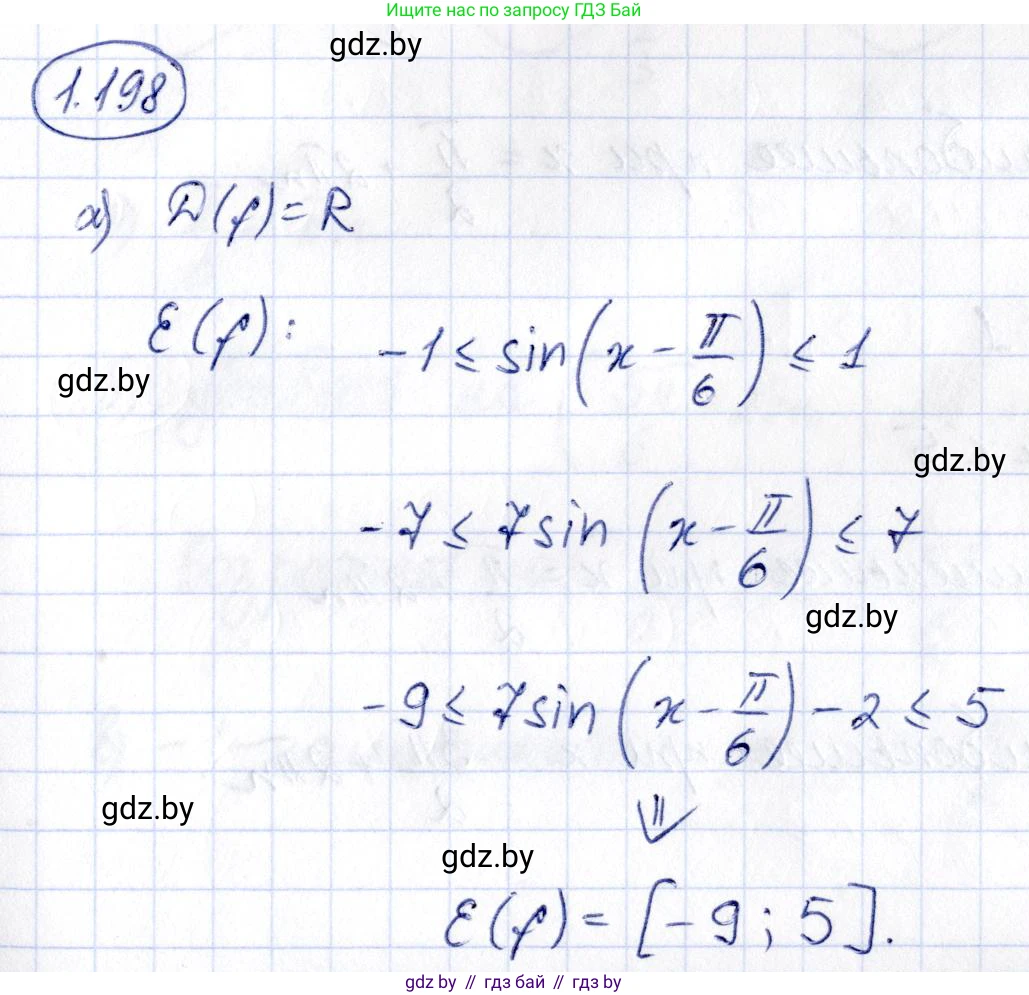 Ищите нас по запросу ГДЗ Бай
gdz.by
1.198
а) D(f) = R
E(f): -1 ≤ sin(x - π/6) ≤ 1
gdz.by
gdz.by
-7 ≤ 7sin(x - π/6) ≤ 7
gdz.by
-9 ≤ 7sin(x - π/6) - 2 ≤ 5
gdz.by
⇓
gdz.by
E(f) = [-9; 5].
gdz.by // гдз бай // gdz by